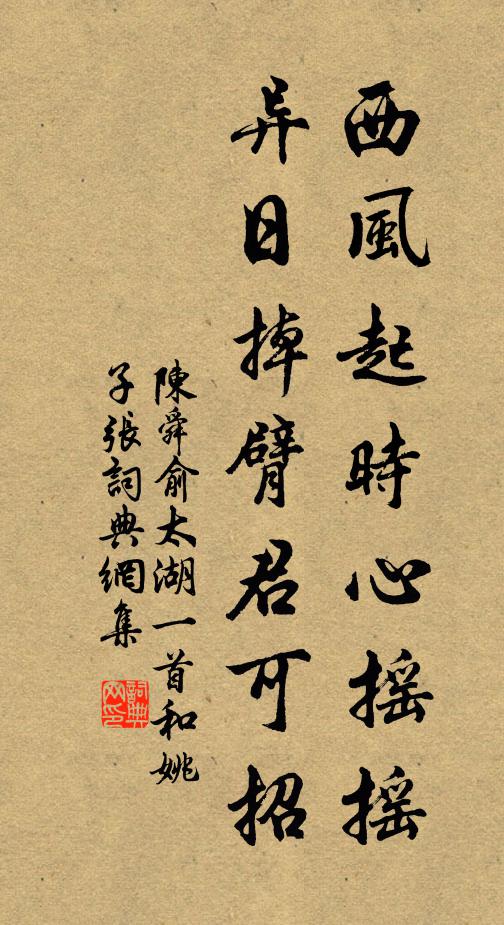 西風起時心摇摇
异日掉臂君可招
陳舜俞太湖一首和姚
子張詞典網集
詞典
网印